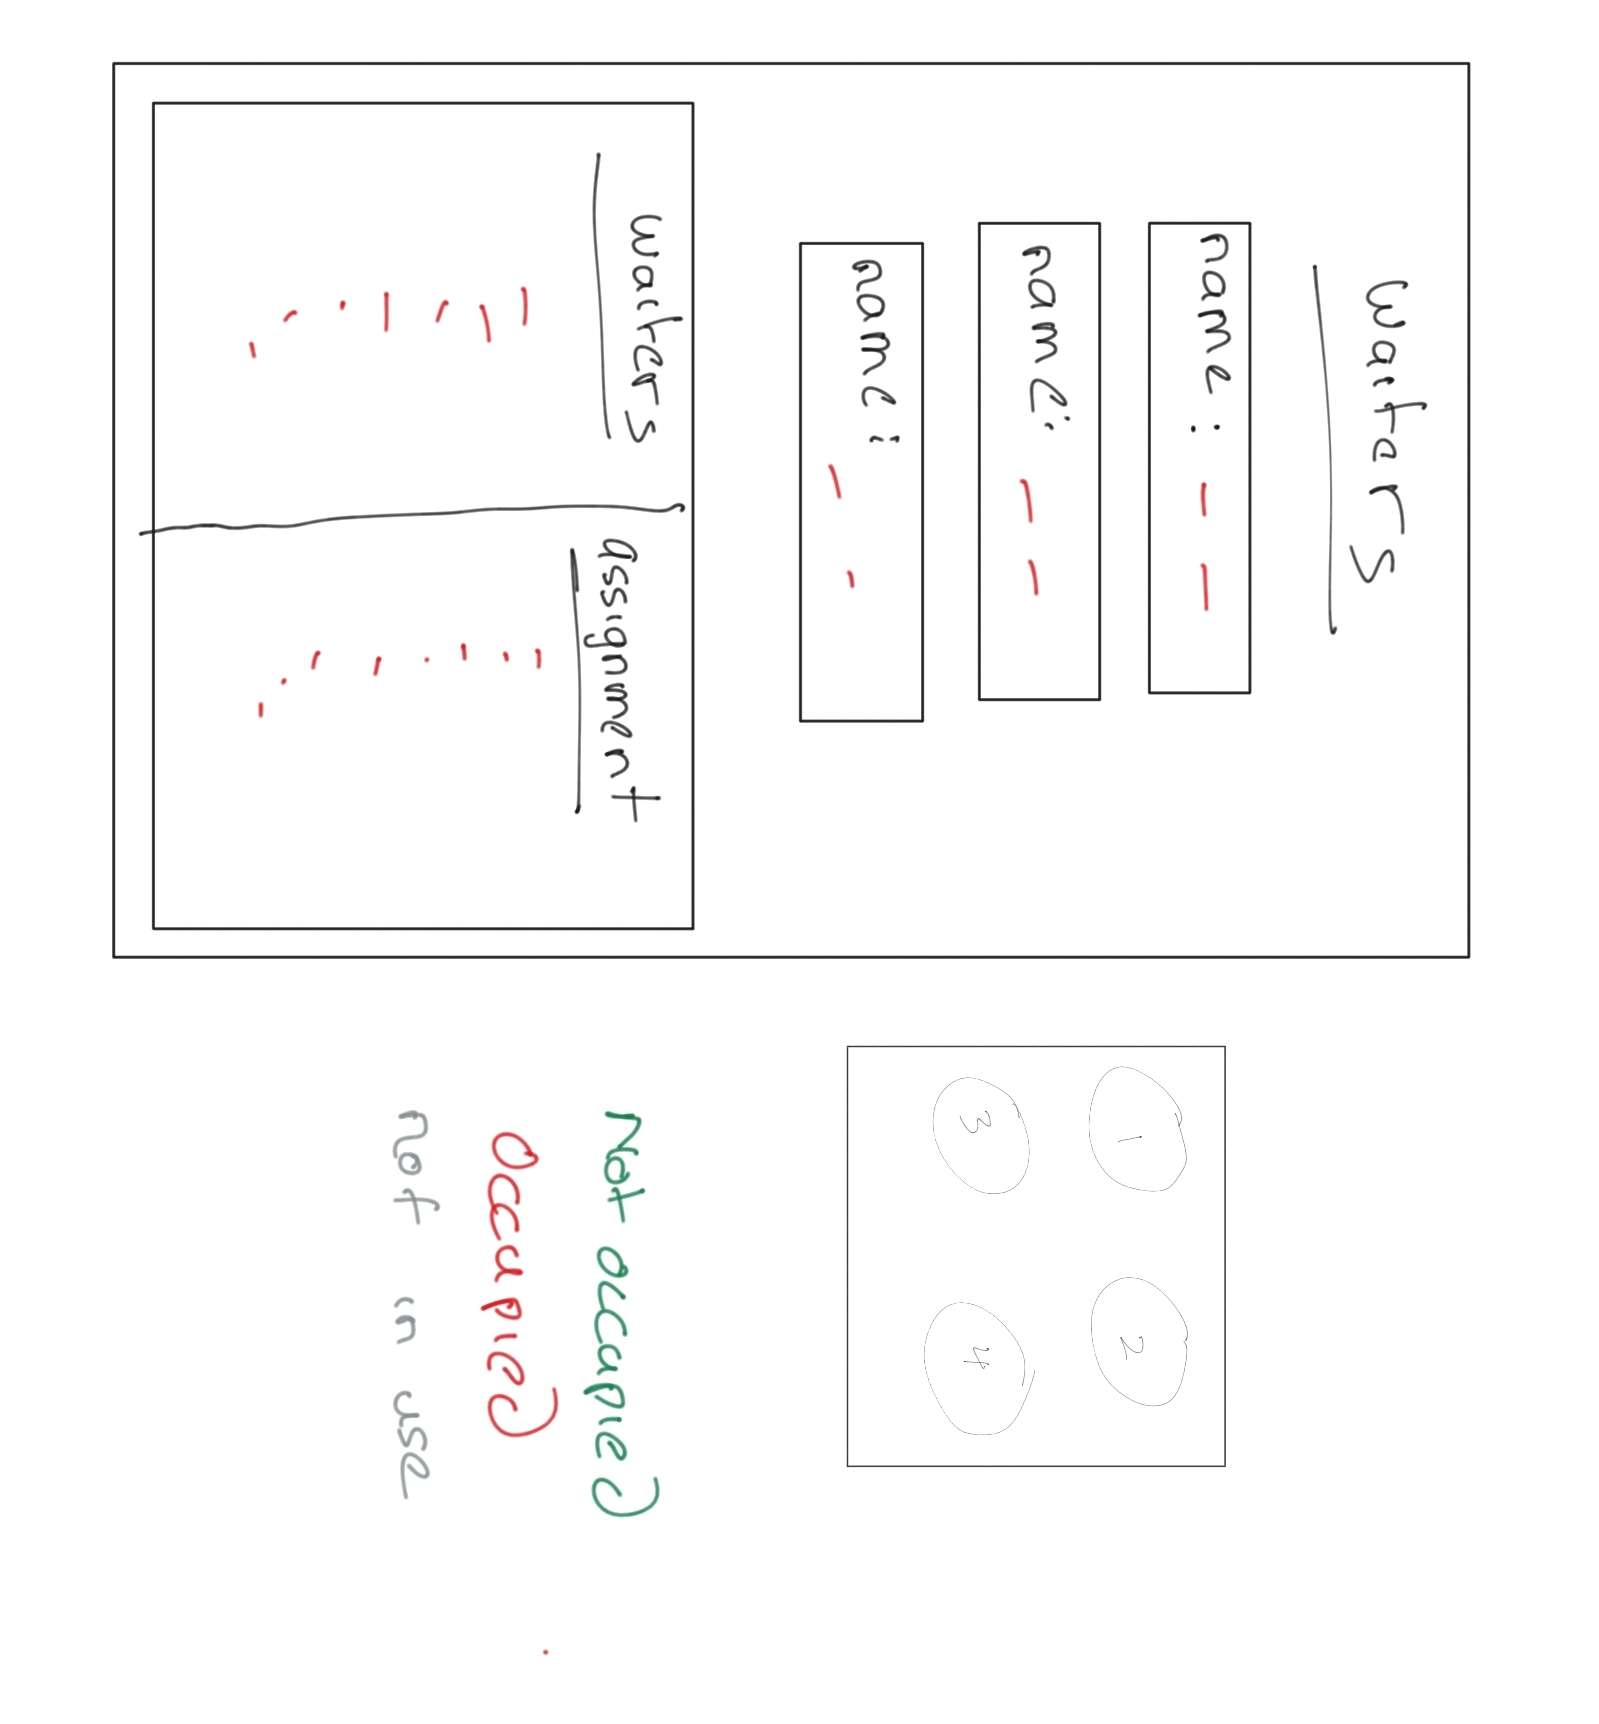 Waiters
name :
name :
name :
waiters
assignment
1
2
3
4
Not occupied
Occupied
not in use